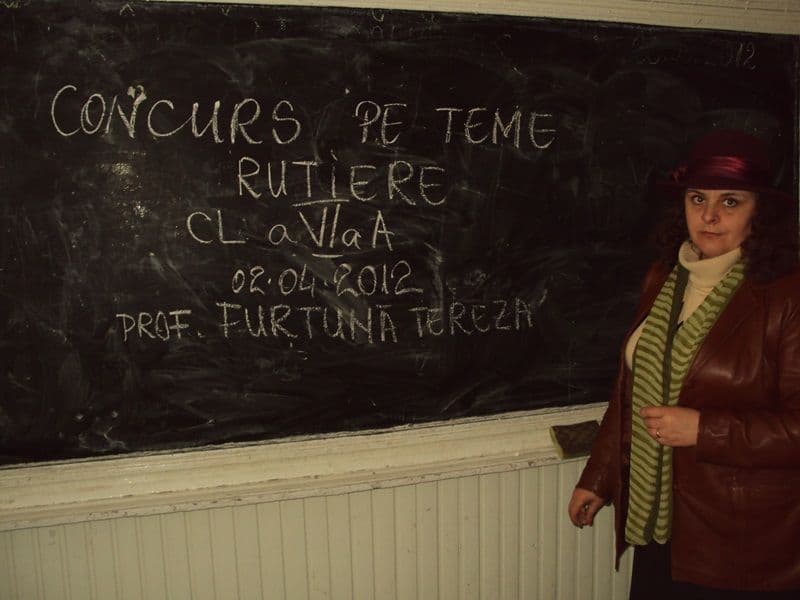 CONCURS PE TEME
RUTIERE
CL a VI a A
02.04.2012
PROF. FURTUNĂ TEREZA